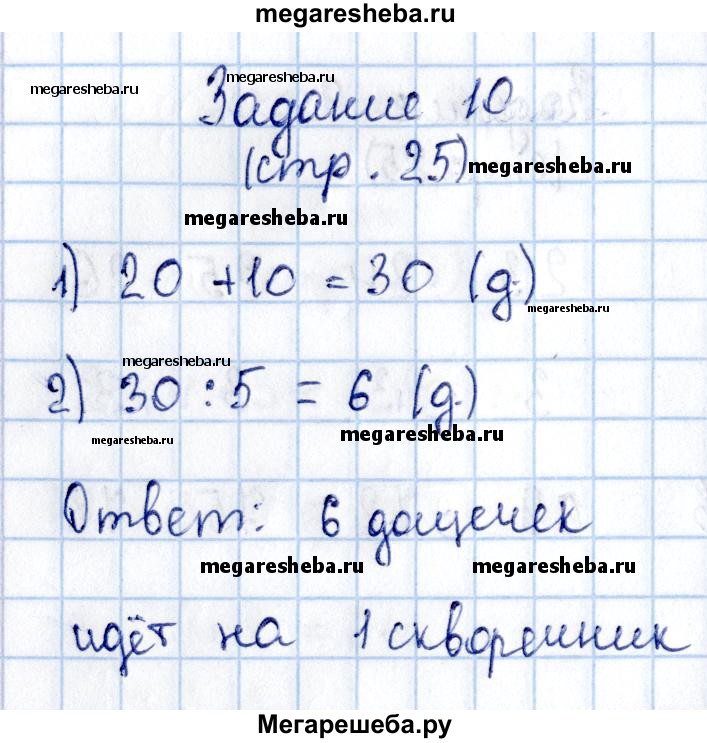 megaresheba.ru
megaresheba.ru megaresheba.ru
Задание 10
(стр. 25) megaresheba.ru
megaresheba.ru
1) 20 + 10 = 30 (д.)
megaresheba.ru
megaresheba.ru
2) 30 : 5 = 6 (д.)
megaresheba.ru megaresheba.ru
Ответ: 6 дощечек
megaresheba.ru megaresheba.ru
идёт на 1 скворечник
Мегарешеба.ру